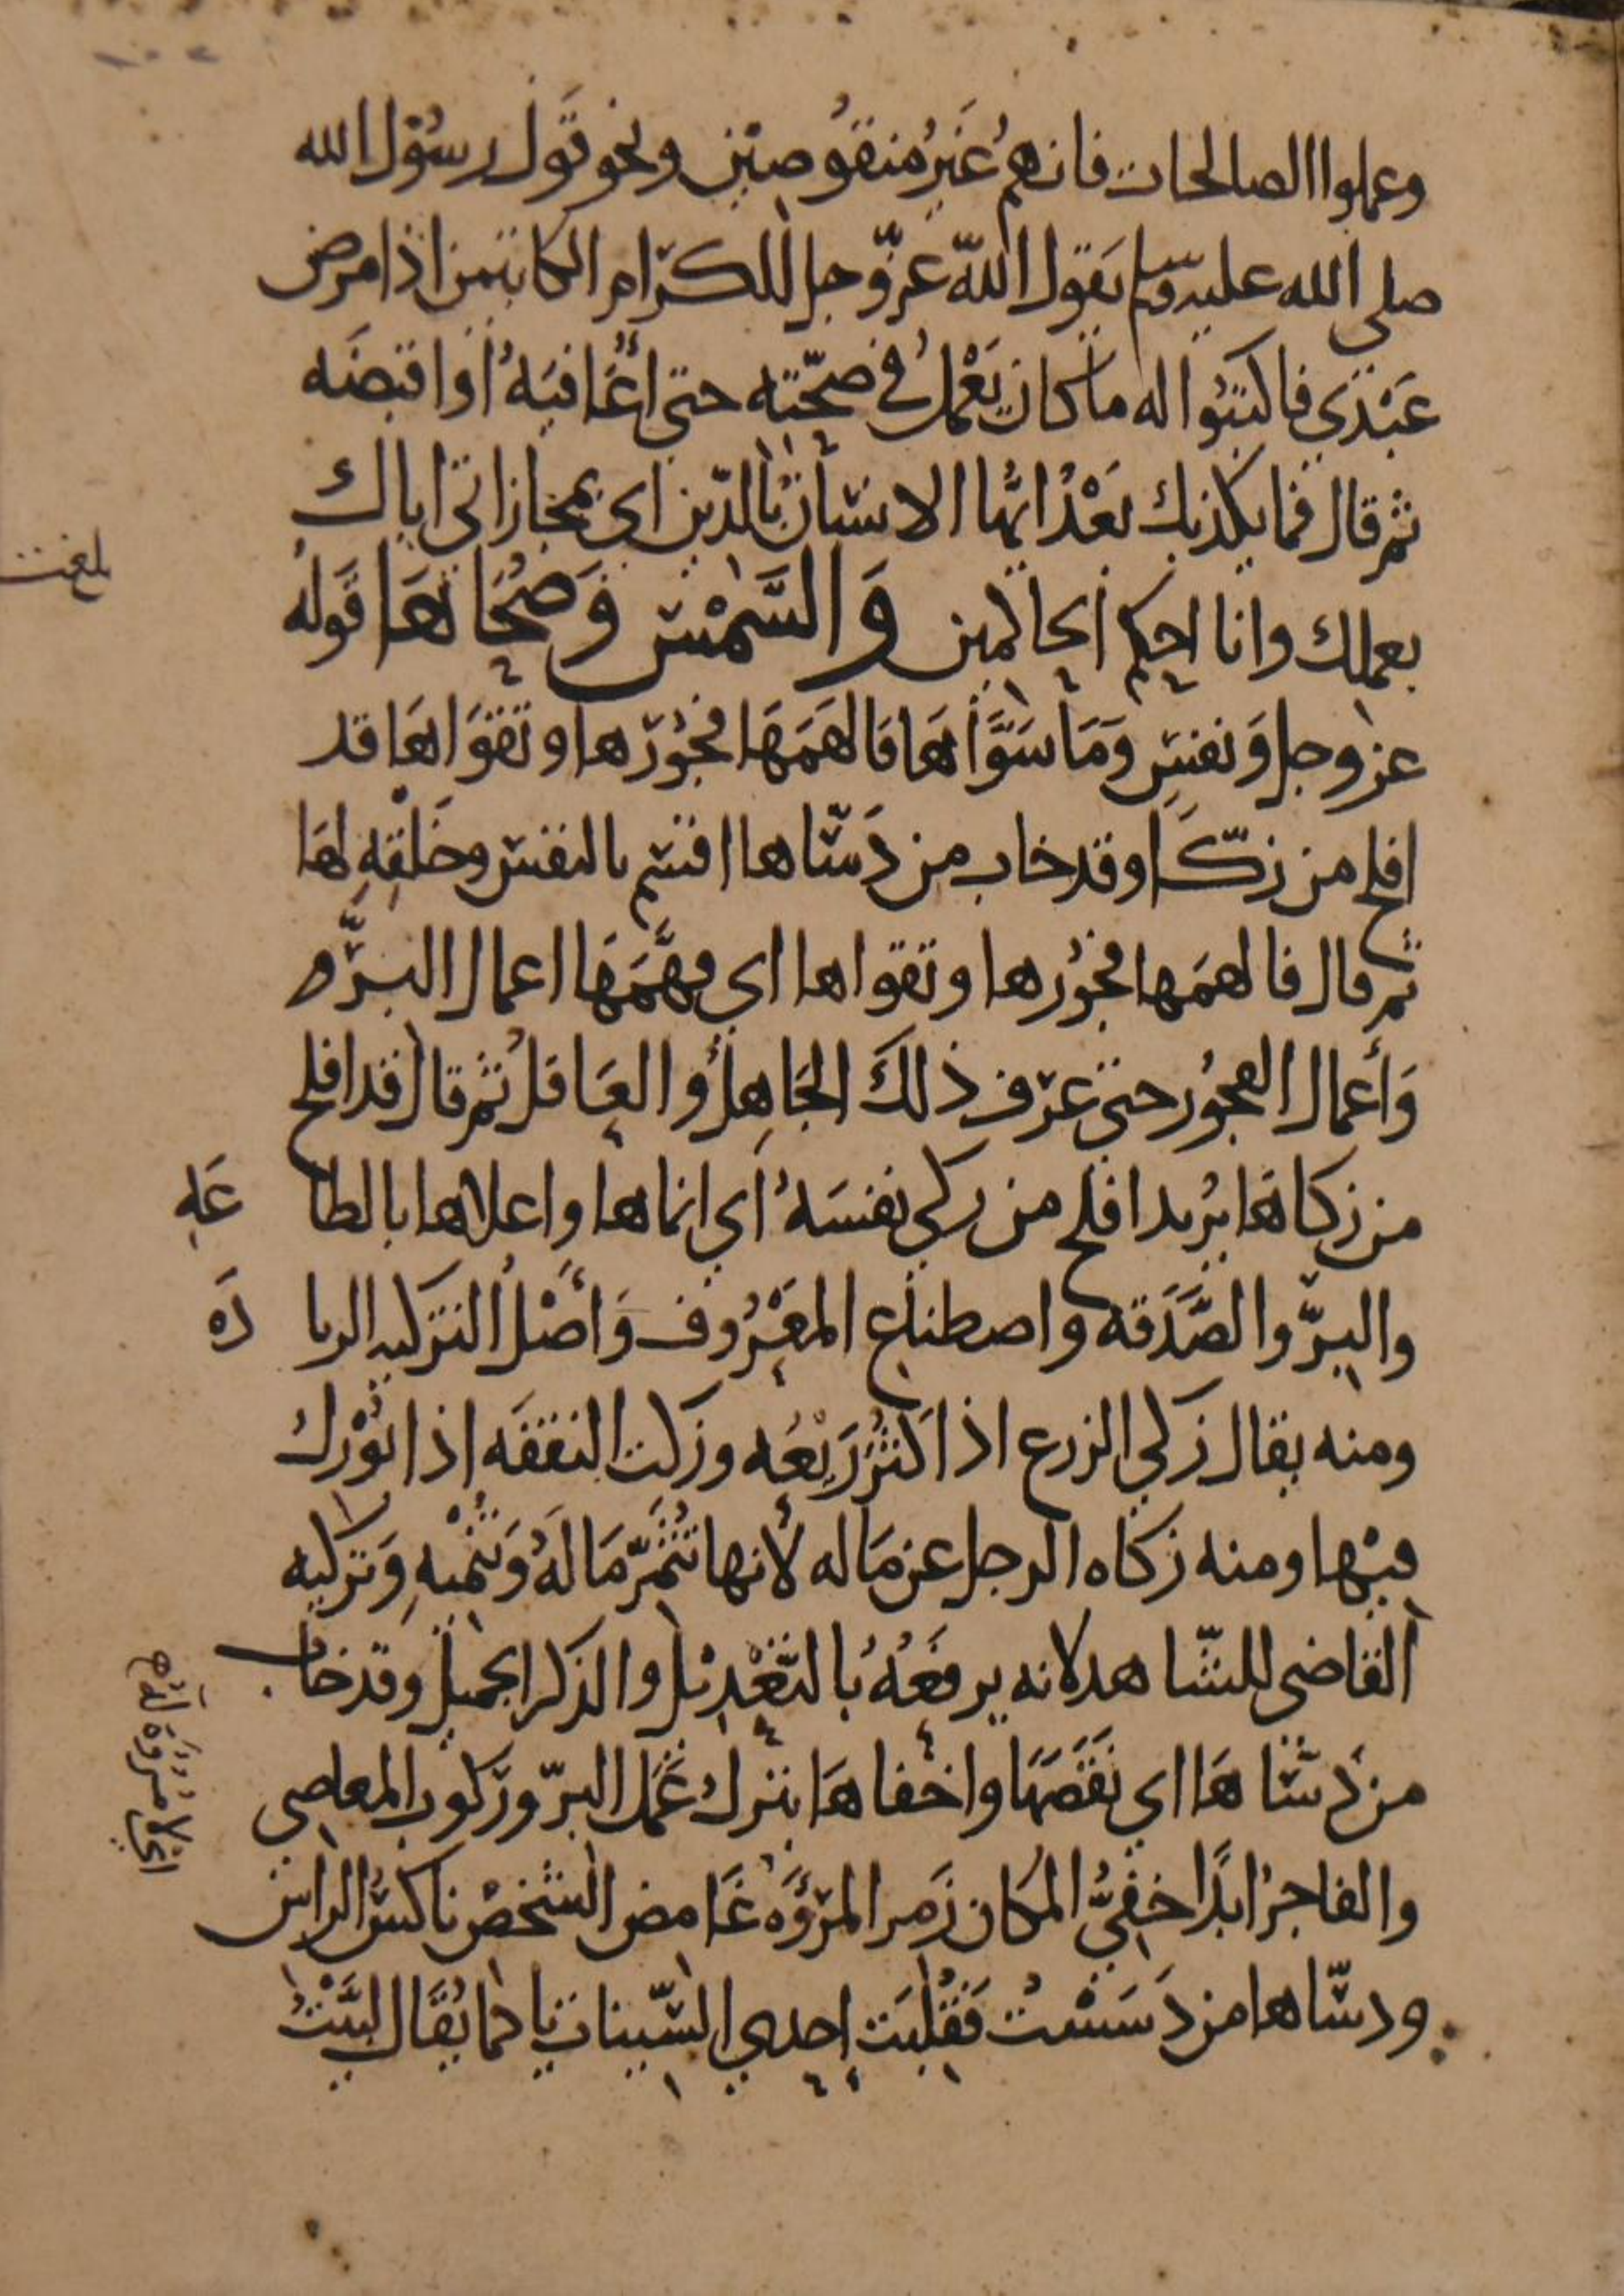 وعملوا الصالحات فانهم غَيرُ منقُوصيْن ونحو قَول رسُوْل الله
صلى الله عليه وسلم يَقول اللّه عزّ وجل للكرَام الكاتبين اذا مرض
عَبْدي فاكتبُوا له ما كان يَعْملُ في صحّته حتى أعَافيَهُ او اقبضَه
ثم قال فما يكذبك بَعْدُ ايُّها الانسَان بالدّين اي بمجازاتي اياك
بعملك وانا احكم الحاكمين وَالشَّمْس وَضُحَاهَا قَولهُ
عز وجل وَنفسٍ وَمَا سَوَّاهَا فَالهَمَهَا فجُوْرَها وتَقوَاهَا قد
افلح من زكّا وقد خاب من دَسّاها اقسَم بالنفس وخَلْقِهِ لهَا
ثم قال فالهمَها فجُوْرها وتقواها اي فهَّمَهَا اعمال البرّ و
وَأعمال الفجُور حتى عرَف ذلكَ الجَاهِلُ والعَاقلُ ثم قال قد افلح
من زكاهَا يُريد افلح من زكي نفسَهُ اي انماها واعلاها بالطا عَهِ
والبرّ والصَّدَقة واصطناع المعْرُوف وَأصْلُ التزكيه الزيا دَه
ومنه يقال زَكي الزرع اذا كثُرَ رَيعُه وزكت النفقَه اذا بُوْرك
فيْها ومنه زكاه الرجل عن مَاله لأنها تُثمّر مَا لَهُ وَتُنْميهِ وَتزكيه
القاضي للشّاهد لانه يرفعُهُ بالتّعْدِيْل والذكر الجميل وقد خاب
من دَسّاهَا اي نَقَصَهَا واخْفاهَا بترك عَمَل البرّ وركوب المعاصي
والفاجرُ ابدًا خفيُّ المكان زَمر المرُؤَه غَامض الشخصْ ناكسُ الراس
ودسّاها من دَسَسْت فَقُلبَت إحدي السّينات يا كما يُقَال لبَّيْتُ
بلغت